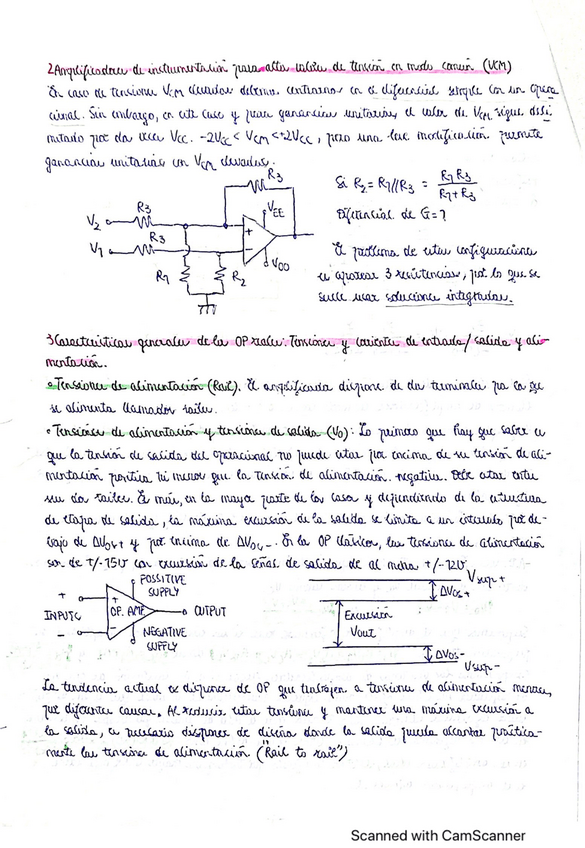 2 Amplificadores de instrumentación para altos valores de tensión en modo común (VCM)
En caso de tensiones VCM elevadas debemos centrarnos en el diferencial simple con un opera
cional. Sin embargo, en este caso y para ganancias unitarias, el valor de VCM sigue deli
mitado por dos veces VCC. -2VCC < VCM < +2VCC, pero una leve modificación permite
ganancias unitarias con VCM elevadas.
R3
Si R2 = R1//R3 = R1 R3 / R1 + R3
VEE
V2
R3
Diferencial de G=?
V1
R3
+
-
VOO
R1
R2
El problema de estas configuraciones
es aparear 3 resistencias, por lo que se
suele usar soluciones integradas.
3 Características generales de los OP reales: Tensiones y corrientes de entrada/salida y ali-
mentación.
• Tensiones de alimentación (Rail). El amplificador dispone de dos terminales por los que
se alimenta llamados railes.
• Tensiones de alimentación y tensiones de salida (Vo): Lo primero que hay que saber es
que la tensión de salida del operacional no puede estar por encima de su tensión de ali-
mentación positiva ni menor que la tensión de alimentación negativa. Debe estar entre
sus dos railes. Es más, en la mayor parte de los casos y dependiendo de la estructura
de etapa de salida, la máxima excursión de la salida se limita a un intervalo por de-
bajo de ΔVOS+ y por encima de ΔVOS-. En los OP clásicos, las tensiones de alimentación
son de +/-15V con excursión de la señal de salida de al menos +/-12V
POSSITIVE
SUPPLY
Vsup+
ΔVOS+
+
INPUTS
-
+
OP. AMP
-
OUTPUT
Excursión
Vout
NEGATIVE
SUPPLY
ΔVOS-
Vsup-
La tendencia actual es disponer de OP que trabajen a tensiones de alimentación menores,
por diferentes causas. Al reducir estas tensiones y mantener una máxima excursión a
la salida, es necesario disponer de diseños donde la salida pueda alcanzar práctica-
mente las tensiones de alimentación ("Rail to rail")
Scanned with CamScanner